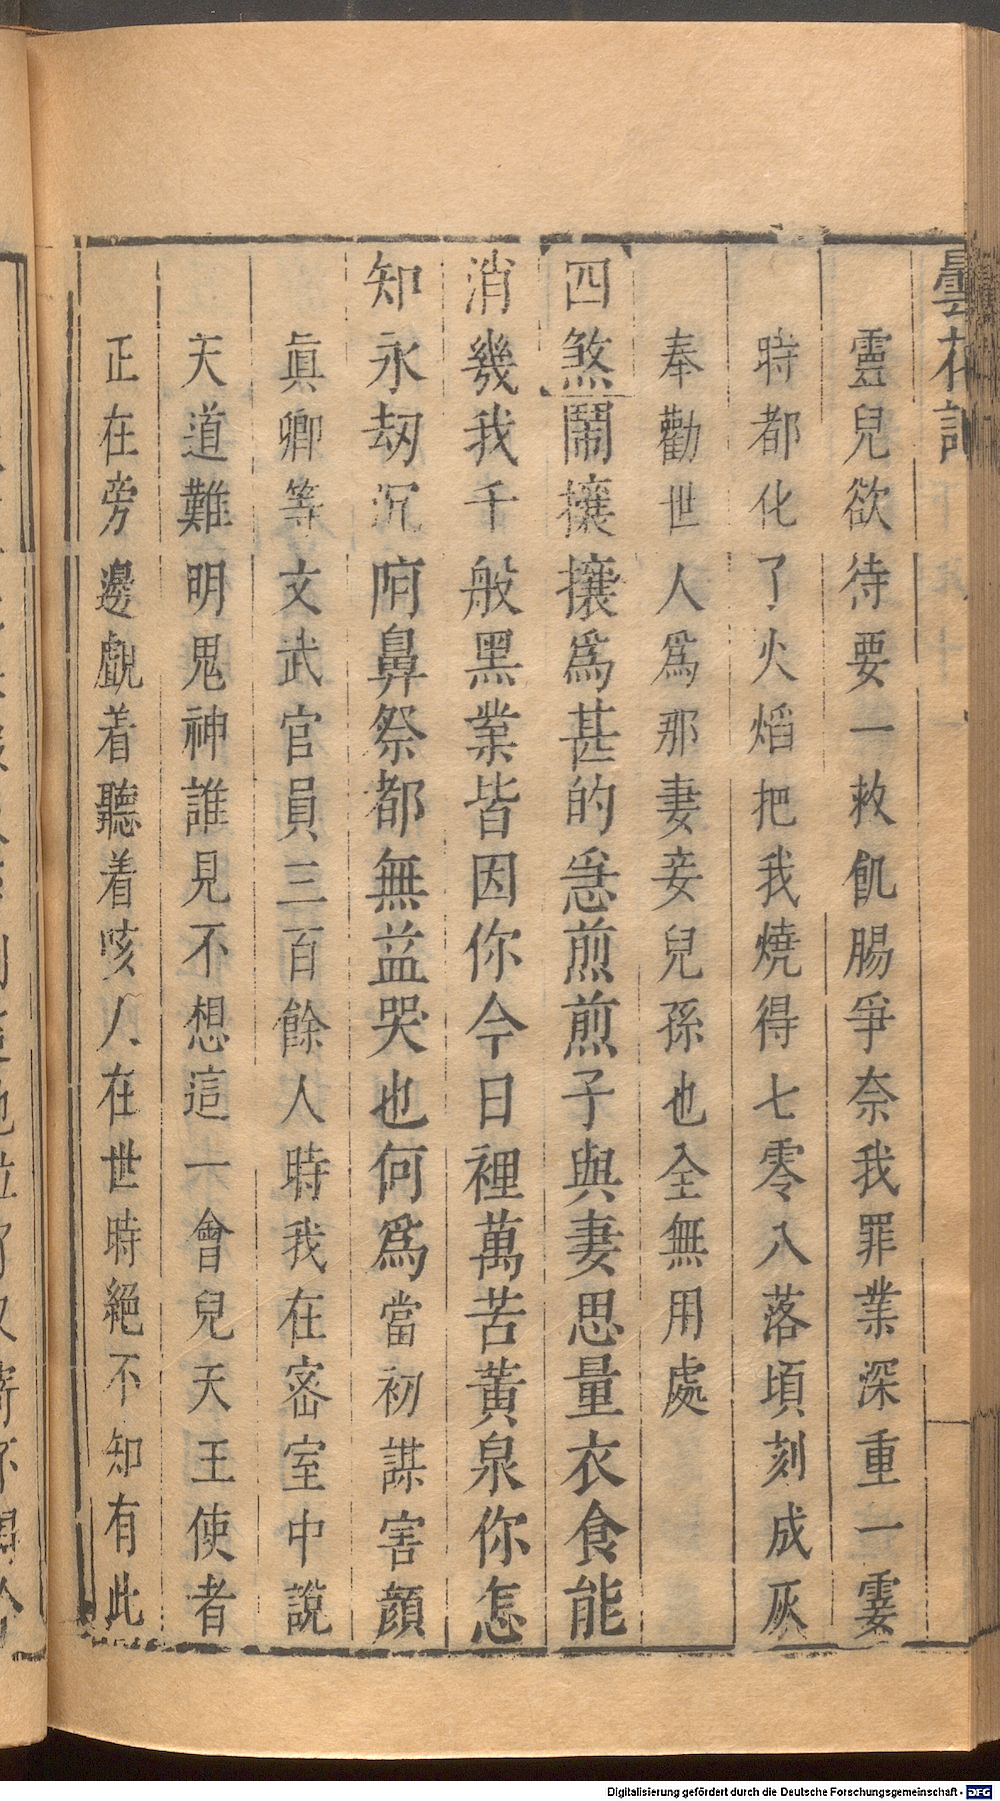 曇花記
靈兒欲待要一救飢腸爭奈我罪業深重一霎
時都化了火焰把我燒得七零八落頃刻成灰
奉勸世人爲那妻妾兒孫也全無用處
四煞鬧攘攘爲甚的急煎煎子與妻思量衣食能
消幾我千般黑業皆因你今日裡萬苦黃泉你怎
知永劫沉痾鼻祭都無益哭也何爲當初謀害顔
眞卿等文武官員三百餘人時我在密室中說
天道難明鬼神誰見不想這一會兒天王使者
正在旁邊覷着聽着咳人在世時絕不知有此
Digitalisierung gefördert durch die Deutsche Forschungsgemeinschaft - DFG